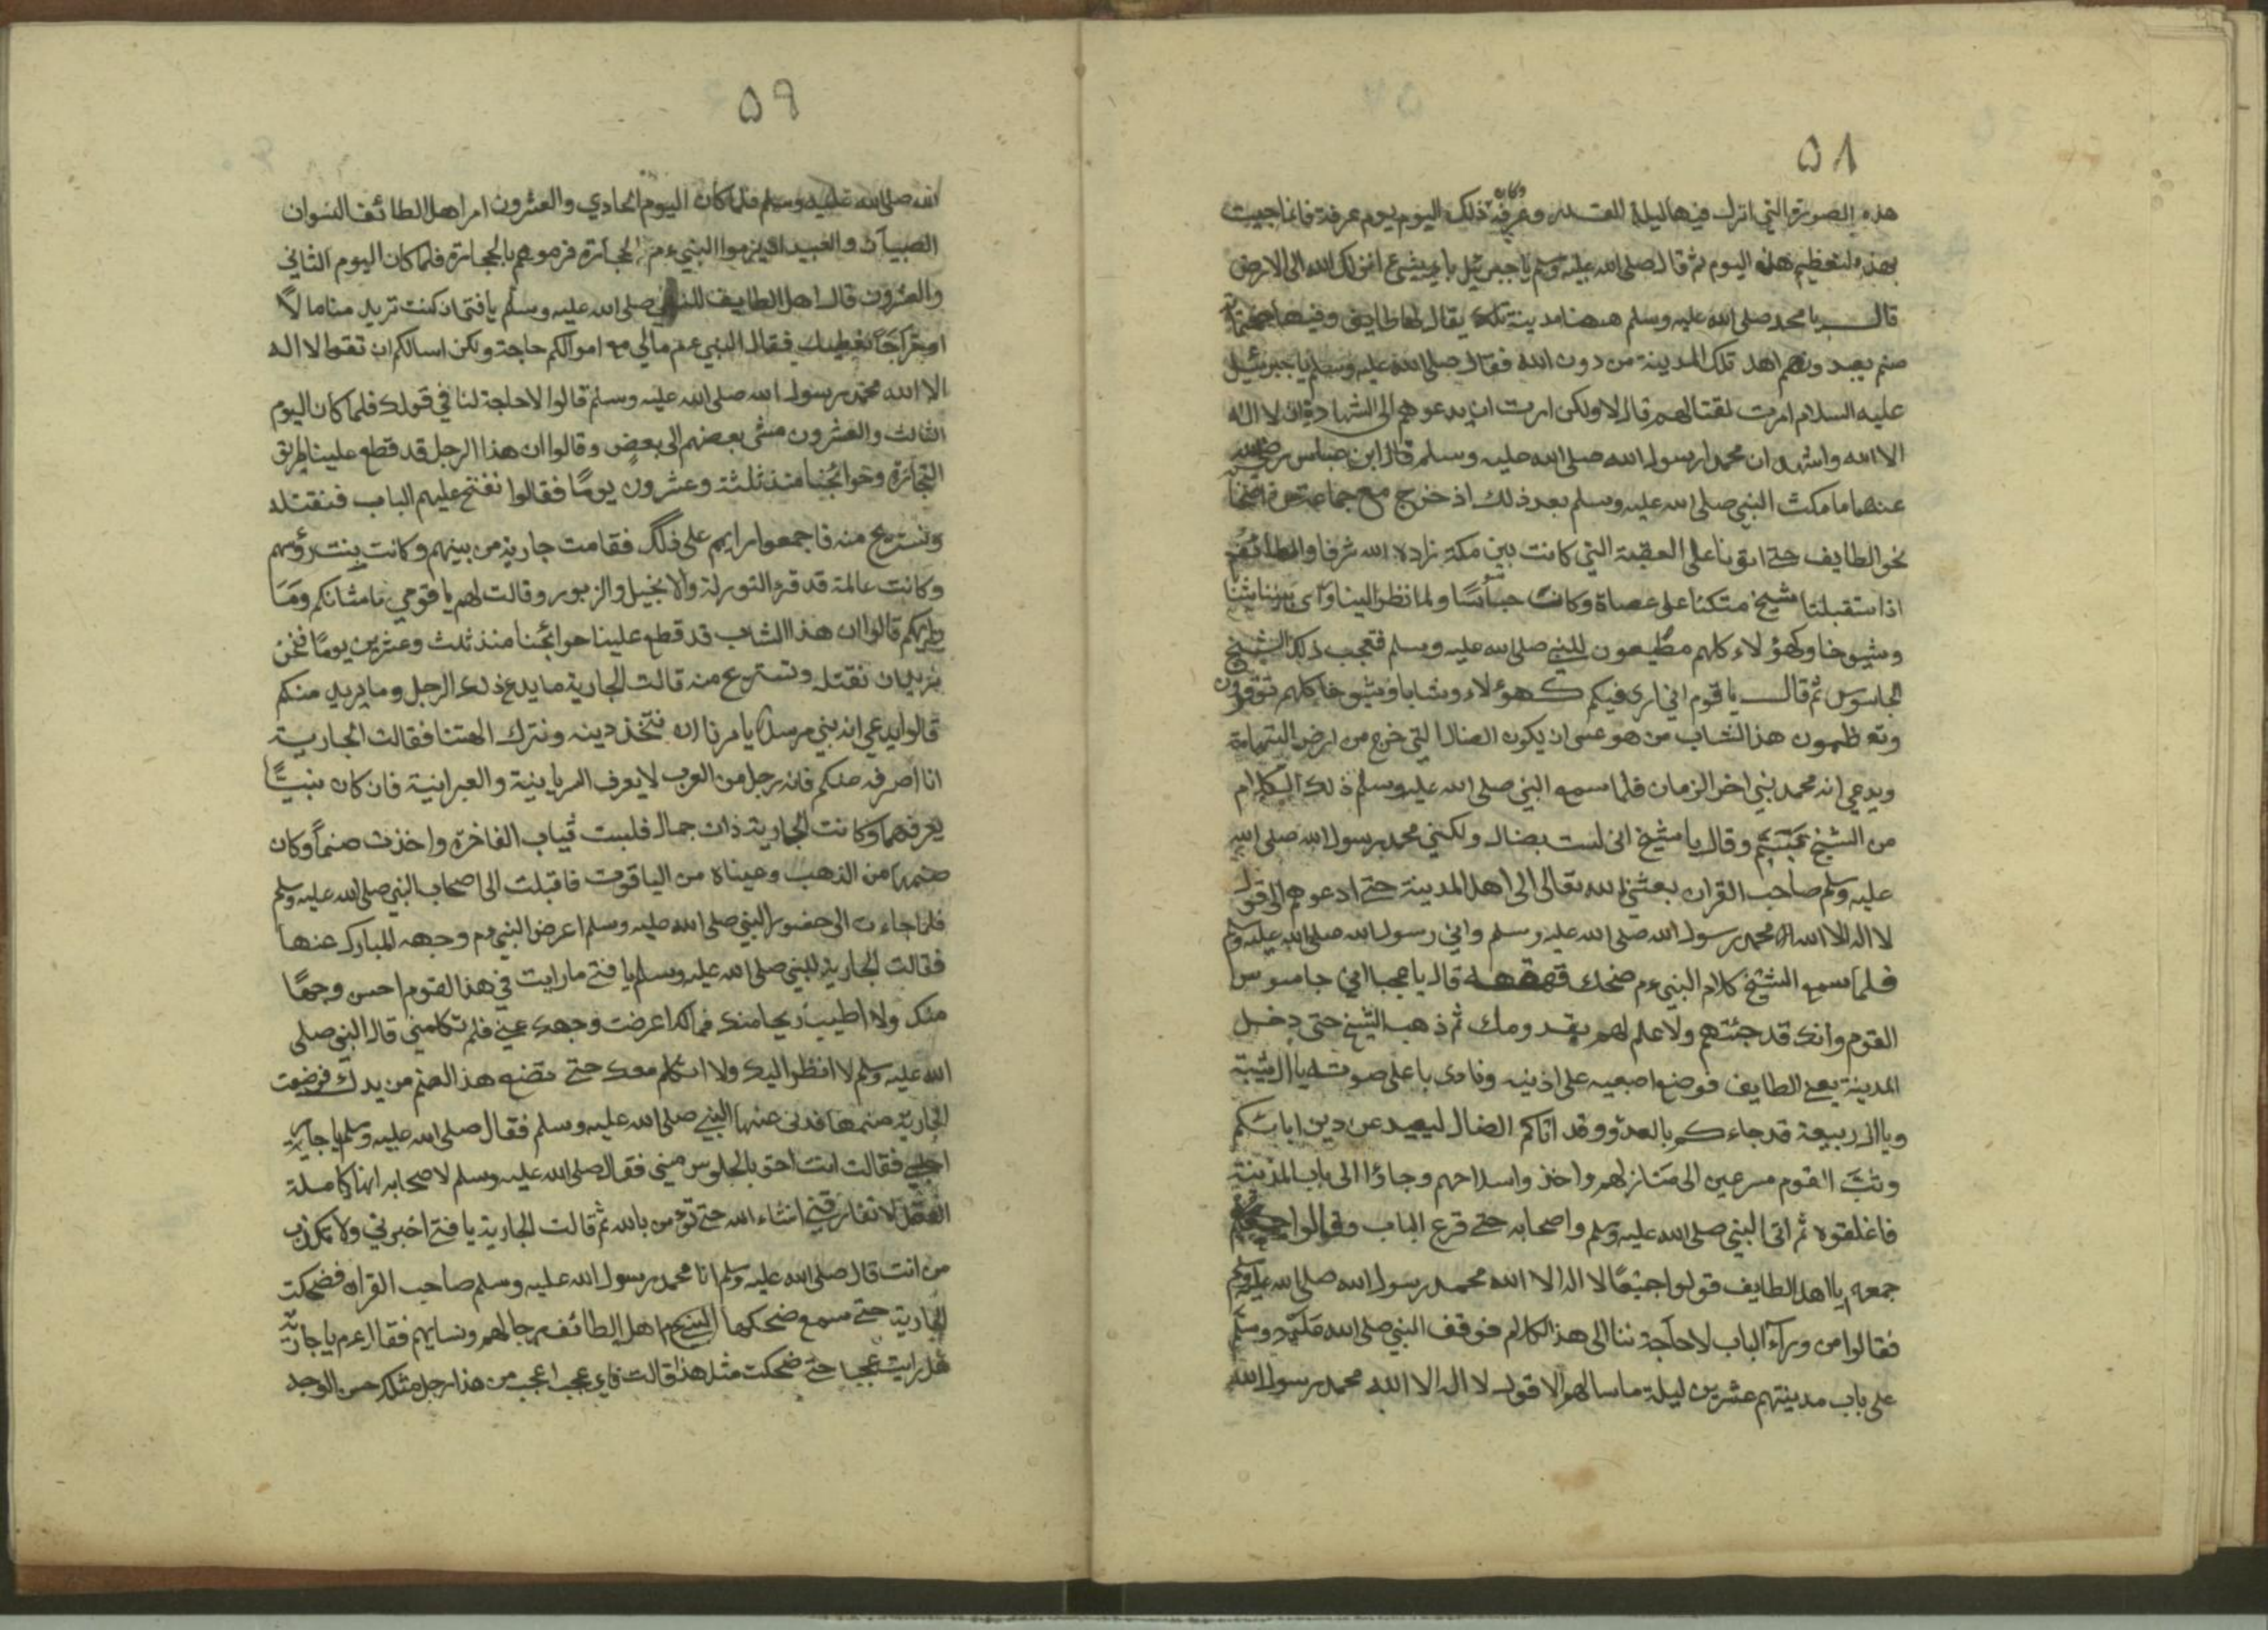 ٥٨
هذه الصورة التي انزل فيها ليلة القدر وعرفة وكان ذلك اليوم يوم عرفة فانما جيت
بهذه لتعظيم هذه اليوم ثم قال صلى الله عليه وسلم يا جبرئيل باي شيئ انزلك الله الى الارض
قال يا محمد صلى الله عليه وسلم ههنا مدينة تلك يقال لها طايف وفيها
صنم يعبدونهم اهل تلك المدينة من دون الله فقال صلى الله عليه وسلم يا جبرئيل
عليه السلام امرت لقتالهم قال لا ولكن امرت ان يدعوهم الى الشهادة ان لا اله
الا الله واشهد ان محمدا رسول الله صلى الله عليه وسلم قال ابن عباس رضي الله
عنهما ما مكث النبي صلى الله عليه وسلم بعد ذلك اذ خرج مع جماعة
نحو الطايف حتى اتونا على العقبة التي كانت بين مكة زاده الله شرفا والطائف
اذا ستقبلنا شيخ متكئا على عصاة وكانت جاسوسا ولما نظر الينا وراى
وشيوخا وكهؤلاء كلهم مطيعون للنبي صلى الله عليه وسلم فتعجب ذلك الشيخ
الجاسوس ثم قال يا قوم اني ارى فيكم كهؤلاء وشابا وشيوخا كلهم توقرون
وتعظمون هذا الشاب من هو عسى ان يكون الضال التي خرج من ارض التهامة
ويدعي انه محمد نبي اخر الزمان فلما سمع النبي صلى الله عليه وسلم ذلك الكلام
من الشيخ تبسم وقال يا شيخ انى لست بضال ولكنني محمد رسول الله صلى الله
عليه وسلم صاحب القران بعثني الله تعالى الى اهل المدينة حتى ادعوهم الى قول
لا اله الا الله محمد رسول الله صلى الله عليه وسلم واني رسول الله صلى الله عليه وسلم
فلما سمع الشيخ كلام النبي عم ضحك قهقهة قال يا عجبا اني جاسوس
القوم وانك قد جئتهم ولا علم لهم بقدومك ثم ذهب الشيخ حتى دخل
المدينة يعنى الطايف فوضع اصبعيه على اذنيه ونادى باعلى صوته يا ال شيبة
ويا ال ربيعة قد جاءكم بالعدو وقد اتاكم الضال ليعيد عن دين ابائكم
وثب القوم مسرعين الى منازلهم واخذوا سلاحهم وجاؤا الى باب المدينة
فاغلقوه ثم اتى النبي صلى الله عليه وسلم واصحابه حتى قرع الباب وقالوا
جمعهم يا اهل الطايف قولوا جميعا لا اله الا الله محمد رسول الله صلى الله عليه وسلم
فقالوا من ورآء الباب لا حاجة لنا الى هذا الكلام فوقف النبي صلى الله عليه وسلم
على باب مدينتهم عشرين ليلة ما سالهم الا قول لا اله الا الله محمد رسول الله
٥٩
الله صلى الله عليه وسلم فلما كان اليوم الحادي والعشرون امر اهل الطائف النسوان
الصبيان والعبيد ان يرموا النبي عم الحجارة فرموهم بالحجارة فلما كان اليوم الثاني
والعشرون قال اهل الطايف للنبي صلى الله عليه وسلم يا فتى ان كنت تريد منا مالا
او تزوجا نعطيك فقال النبي عم مالي مع اموالكم حاجة ولكن اسالكم ان تقولا لا اله
الا الله محمد رسول الله صلى الله عليه وسلم قالوا لا حاجة لنا في قولك فلما كان اليوم
الثالث والعشرون مشى بعضهم الى بعض وقالوا ان هذا الرجل قد قطع علينا طريق
التجارة وحوائجنا منذ ثلثة وعشرون يوما فقالوا نفتح عليهم الباب فنقتله
ونستريح منه فاجمعوا رايهم على ذلك فقامت جارية من بينهم وكانت بنت رؤسهم
وكانت عالمة قد قرء التورلة والانجيل والزبور وقالت لهم يا قومي ما شانكم وما
رايكم قالوا ان هذا الشاب قد قطع علينا حوائجنا منذ ثلث وعشرين يوما فنحن
نريد ان نقتله ونستريح منه قالت الجارية ما يدع ذلك الرجل وما يريد منكم
قالوا يدعي انه نبي مرسل يا مرنا ان نتخذ دينه ونترك الهتنا فقالت الجارية
انا اصرفه منكم فانه رجل من العرب لا يعرف السريانية والعبرانية فان كان نبيا
يعرفهما وكانت الجارية ذات جمال فلبست ثياب الفاخرة واخذت صنما وكان
صنمها من الذهب وعيناه من الياقوت فاقبلت الى اصحاب النبي صلى الله عليه وسلم
فلما جاءت الى حضور النبي صلى الله عليه وسلم اعرض النبي عم وجهه المبارك عنها
فقالت الجارية للنبي صلى الله عليه وسلم يا فتى ما رايت في هذا القوم احسن وجها
منك ولا اطيب ريحا منك فما لك اعرضت وجهك عني فلم تكلمني قال النبي صلى
الله عليه وسلم لا انظر اليك ولا اتكلم معك حتى تضع هذا الصنم من يدك فوضعت
الجارية صنمها فدنى عنها النبي صلى الله عليه وسلم فقال صلى الله عليه وسلم يا جارية
اجلسي فقالت انت احق بالجلوس مني فقال صلى الله عليه وسلم لاصحابه انها كاملة
العقل لا تفارقني انشاء الله حتى تؤمن بالله ثم قالت الجارية يا فتى اخبرني ولا تكذب
من انت قال صلى الله عليه وسلم انا محمد رسول الله عليه وسلم صاحب القران فضحكت
الجارية حتى سمع ضحكها اهل الطائف رجالهم ونسايهم فقال عم يا جارية
هل رايت عجبا حتى ضحكت مثل هذا قالت فاي عجب اعجب من هذا رجل مثلك حسن الوجه